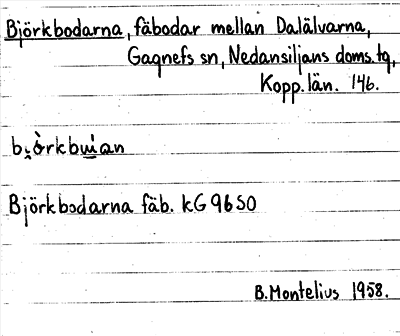 Björkbodarna, fäbodar mellan Dalälvarna,
Gagnefs sn, Nedansiljans doms. tg,
Kopp. län. 146.
Björkbodarna fäb. kG 9650
B. Montelius 1958.